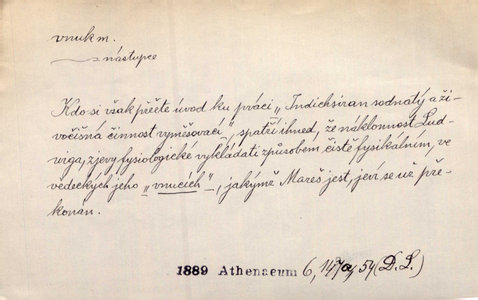 vnuk m.
= nástupce
Kdo si však přečte úvod ku práci „Indichsiran sodnatý a ži-
vočišná činnost vyměšovací“, spatří ihned, že náklonnost Lud-
wiga, zjevy fysiologické vykládati způsobem čistě fysikálním, ve
vědeckých jeho „vnucích“, jakýmž Mareš jest, jeví se už pře-
konán.
1889 Athenaeum 6, 147a, 54 (D. L.)